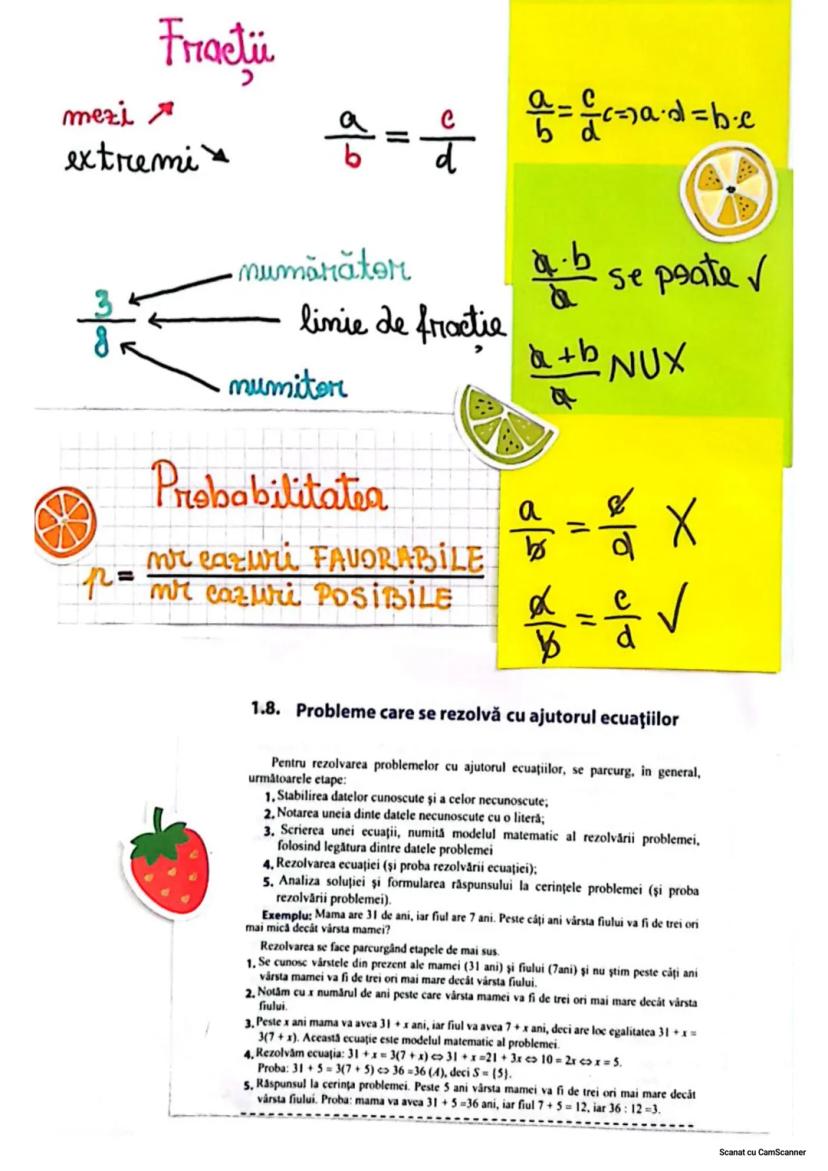 Fracții
mezi ↗
extremi ↘
a/b = c/d
a/b = c/d <=> a·d = b·c
3/8
numărător
linie de fracție
numitor
a·b/a se poate √
a+b/a NU X
Probabilitatea
p = nr cazuri FAVORABILE / nr cazuri POSIBILE
a/b = c/d X
a/b = c/d √
1.8. Probleme care se rezolvă cu ajutorul ecuațiilor
Pentru rezolvarea problemelor cu ajutorul ecuațiilor, se parcurg, în general,
următoarele etape:
1. Stabilirea datelor cunoscute și a celor necunoscute;
2. Notarea uneia dinte datele necunoscute cu o literă;
3. Scrierea unei ecuații, numită modelul matematic al rezolvării problemei,
folosind legătura dintre datele problemei
4. Rezolvarea ecuației (și proba rezolvării ecuației);
5. Analiza soluției și formularea răspunsului la cerințele problemei (și proba
rezolvării problemei).
Exemplu: Mama are 31 de ani, iar fiul are 7 ani. Peste câți ani vârsta fiului va fi de trei ori
mai mică decât vârsta mamei?
Rezolvarea se face parcurgând etapele de mai sus.
1. Se cunosc vârstele din prezent ale mamei (31 ani) și fiului (7ani) și nu știm peste câți ani
vârsta mamei va fi de trei ori mai mare decât vârsta fiului.
2. Notăm cu x numărul de ani peste care vârsta mamei va fi de trei ori mai mare decât vârsta
fiului.
3. Peste x ani mama va avea 31 + x ani, iar fiul va avea 7 + x ani, deci are loc egalitatea 31 + x =
3(7 + x). Această ecuație este modelul matematic al problemei.
4. Rezolvăm ecuația: 31 + x = 3(7 + x) ⇔ 31 + x =21 + 3x ⇔ 10 = 2x ⇔ x = 5.
Proba: 31 + 5 = 3(7 + 5) ⇔ 36 =36 (A), deci S = {5}.
5. Răspunsul la cerința problemei. Peste 5 ani vârsta mamei va fi de trei ori mai mare decât
vârsta fiului. Proba: mama va avea 31 + 5 =36 ani, iar fiul 7 + 5 = 12, iar 36 : 12 =3.
Scanat cu CamScanner